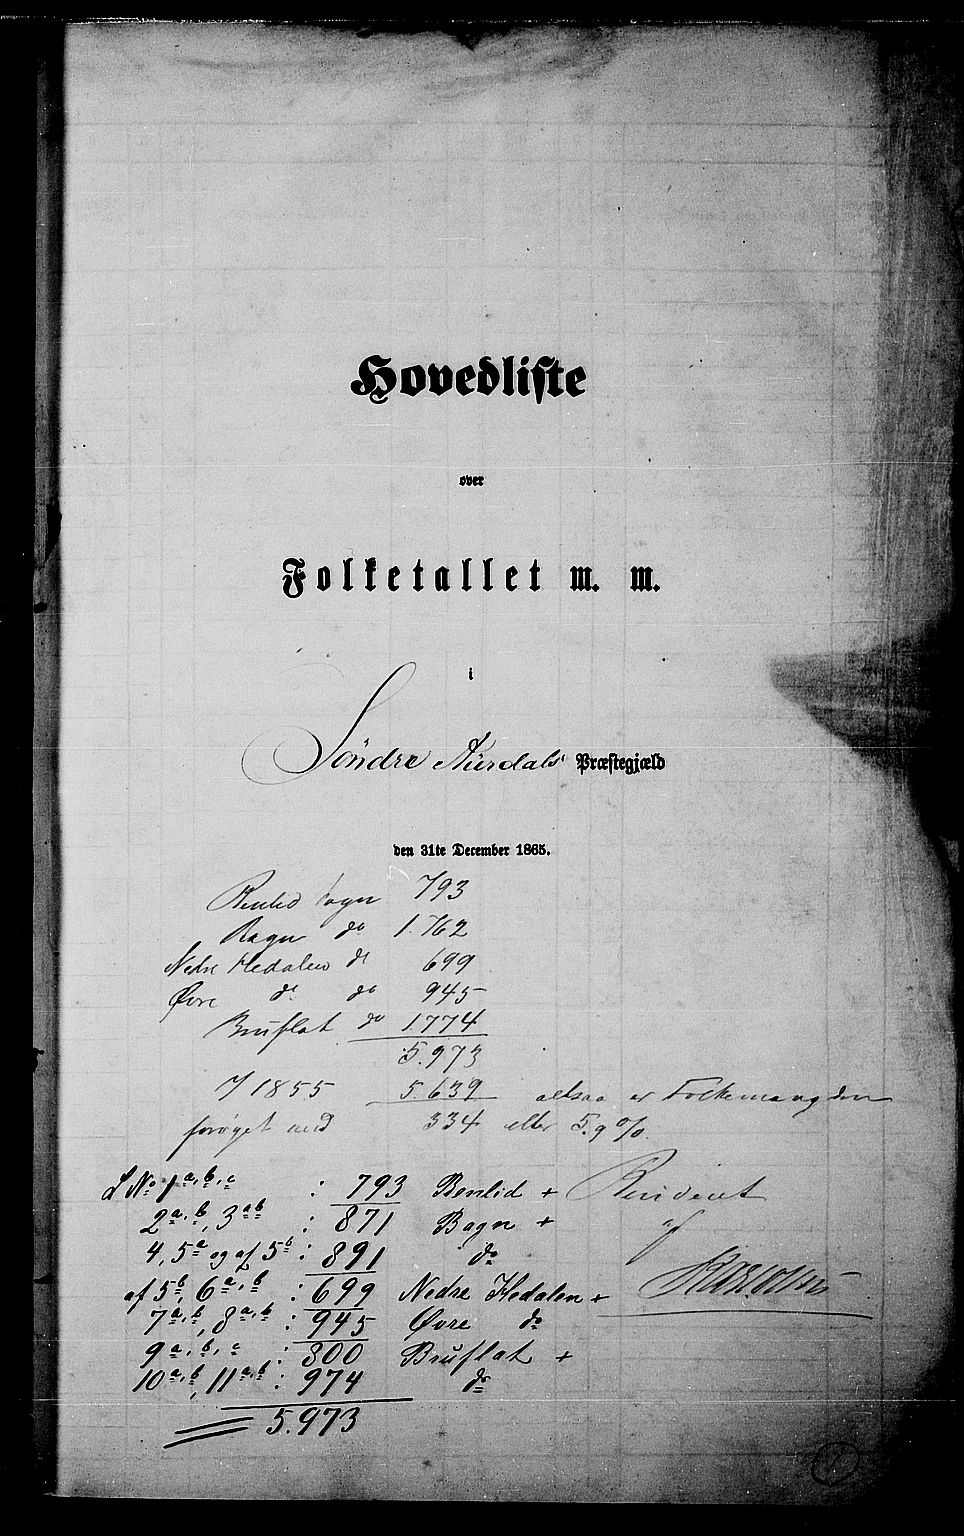 Hovedliste
over
Folketallet m. m.
i
Söndre Aurdals Præstegjæld
den 31te December 1865.
Renlid sogn 793
Bagn do 1.762
Nedre Hedalen do 699
Øvre do do 945
Bruflat do 1774
5.973
I 1855 5.639 altsaa er Folkemængden
forøget med 334 eller 5.9 %.
L No 1 a, b, c : 793 Renlid + Revideret
2 a, b, 3 a b : 871 Bagn + af
4, 5 a og af 5 b : 891 do
af 5 b, 6 a, b : 699 Nedre Hedalen +
7 a, b, 8 a, b : 945 Øvre do
9 a, b, c : 800 Bruflat +
10 a, b, 11 a, b : 974 do
5.973
1